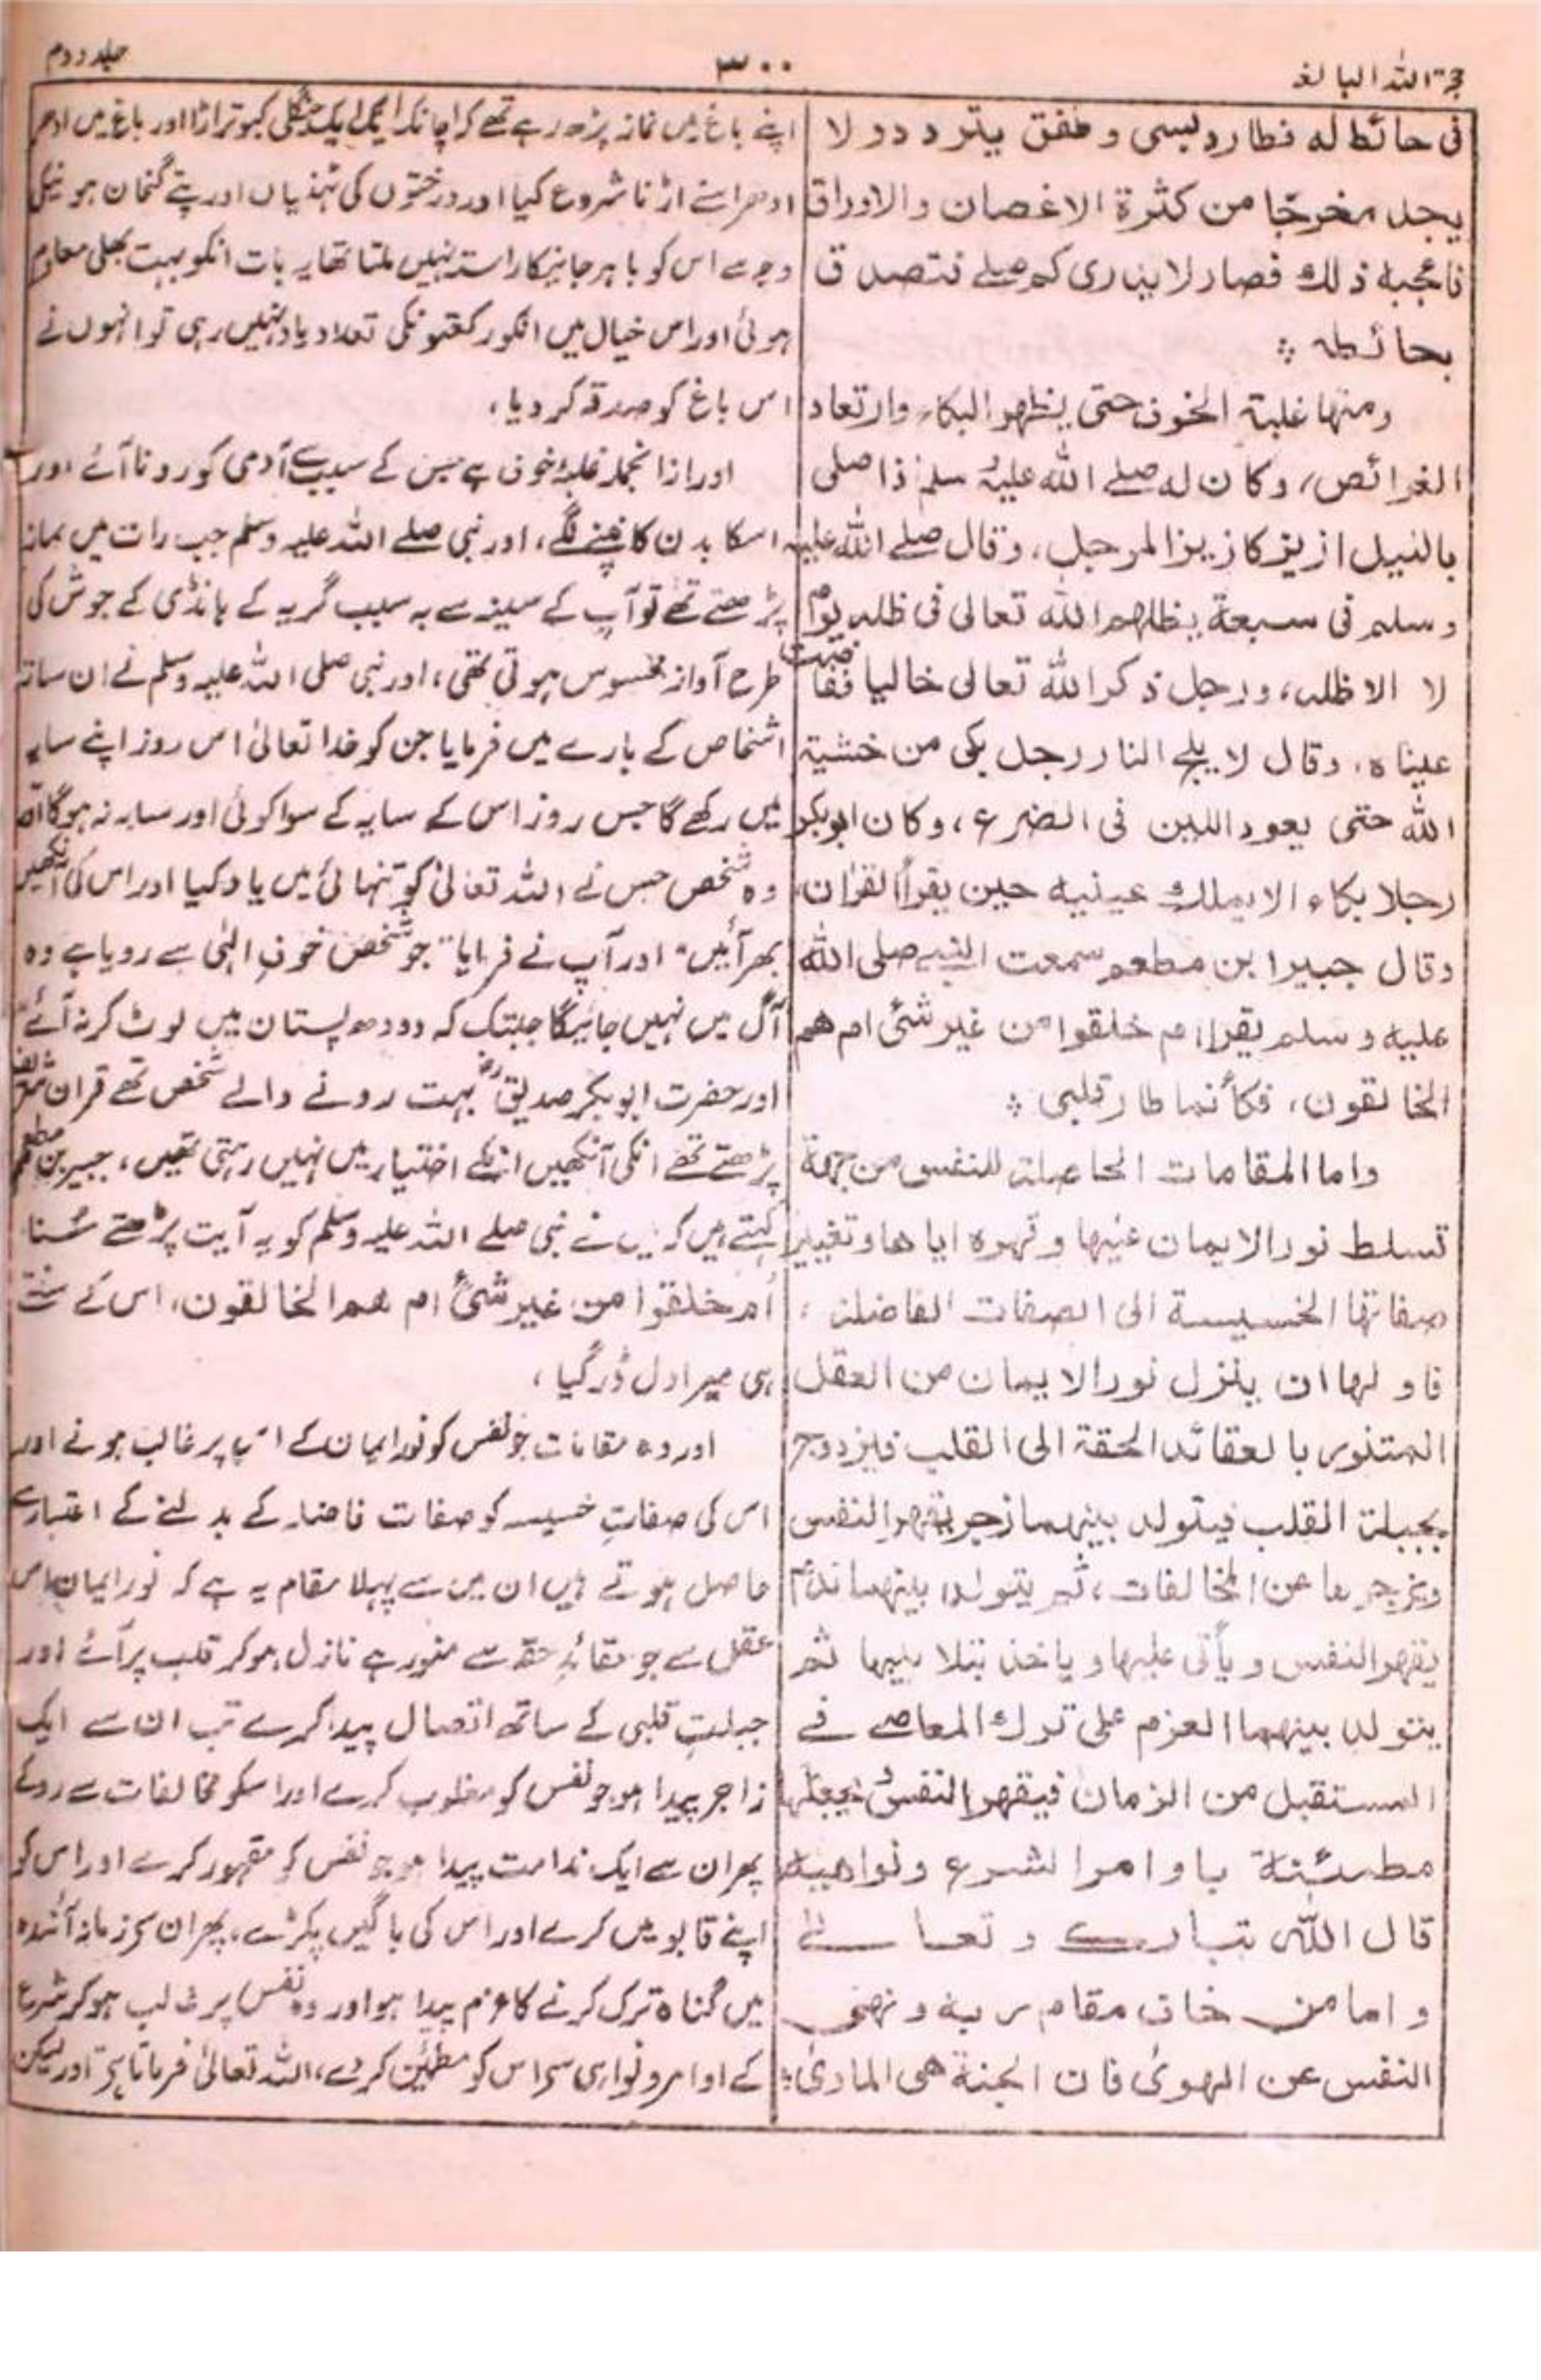 حجۃ اللہ البالغہ
۳۰۰
جلد دوم
فی حائط لہ فطار دبسی و طفق یتردد و لا
یجد مخرجًا من کثرۃ الاغصان والاوراق
فاعجبہ ذلک فصار لا یدری کم صلے فتصدق
بحائطہ ؞
ومنہا غلبۃ الخوف حتی یظہر البکاء وارتعاد
الفرائص، وکان لہ صلے اللہ علیہ وسلم اذا صلی
باللیل ازیز کازیز المرجل، وقال صلے اللہ علیہ
وسلم فی سبعۃ یظلہم اللہ تعالی فی ظلہ یوم
لا الا ظلہ، ورجل ذکر اللہ تعالی خالیا ففاضت
عیناہ، وقال لا یلج النار رجل بکی من خشیۃ
اللہ حتی یعود اللبن فی الضرع، وکان ابوبکر
رجلا بکاء لا یملک عینیہ حین یقرأ القران،
وقال جبیر ابن مطعم سمعت النبی صلی اللہ
علیہ وسلم یقرا ام خلقوا من غیر شئ ام ھم
الخالقون، فکأنما طار قلبی ؞
واما المقامات الحاصلۃ للنفس من جھۃ
تسلط نور الایمان علیہا و قہرہ ایاھا و تغییر
صفاتہا الخسیسۃ الی الصفات الفاضلۃ :
فاولہا ان ینزل نور الایمان من العقل
المتنور بالعقائد الحقۃ الی القلب فیزدوج
بجبلۃ القلب فیتولد بینہما زاجر یقہر النفس
ویزجرھا عن المخالفات، ثم یتولد بینہما ندم
یقہر النفس ویأتی علیہا ویاخذ بتلابیبہا ثم
یتولد بینہما العزم علی ترک المعاصے فے
المستقبل من الزمان فیقھر النفس و یجعلہا
مطمئنۃ باوامر الشرع ونواھیہ
قال اللہ تبارک و تعالے
واما من خاف مقام ربہ و نھی
النفس عن الہویٰ فان الجنۃ ھی الماویٰ ؞
اپنے باغ میں نماز پڑھ رہے تھے کہ اچانک ایک جنگلی کبوتر اڑا اور باغ میں ادھر
ادھر اسنے اڑنا شروع کیا اور درختوں کی ٹہنیاں اور پتے گنجان ہونیکی
وجہ سے اس کو باہر جانیکا راستہ نہیں ملتا تھا یہ بات انکو بہت بھلی معلوم
ہوئی اور اس خیال میں انکو رکعتونکی تعداد یاد نہیں رہی تو انہوں نے
اس باغ کو صدقہ کر دیا،
اور ازانجملہ غلبۂ خوف ہے جس کے سبب سے آدمی کو رونا آئے اور
اسکا بدن کانپنے لگے، اور نبی صلے اللہ علیہ وسلم جب رات میں نماز
پڑھتے تھے تو آپ کے سینہ سے بہ سبب گریہ کے ہانڈی کے جوش کی
طرح آواز محسوس ہوتی تھی، اور نبی صلی اللہ علیہ وسلم نے ان سات
اشخاص کے بارے میں فرمایا جن کو خدا تعالیٰ اس روز اپنے سایہ
میں رکھے گا جس روز اس کے سایہ کے سوا کوئی اور سایہ نہ ہوگا
وہ شخص جس نے اللہ تعالیٰ کو تنہائی میں یاد کیا اور اس کی آنکھیں
بھر آئیں" اور آپ نے فرمایا "جو شخص خوفِ الہٰی سے رویا ہے وہ
آگ میں نہیں جائیگا جبتک کہ دودھ پستان میں لوٹ کر نہ آئے"
اور حضرت ابوبکر صدیقؓ بہت رونے والے شخص تھے قران شریف
پڑھتے تھے انکی آنکھیں انکے اختیار میں نہیں رہتی تھیں، جبیر بن مطعم
کہتے ہیں کہ میں نے نبی صلے اللہ علیہ وسلم کو یہ آیت پڑھتے سُنا
اَم خلقوا من غیر شئ ام ھم الخالقون، اس کے سنتے
ہی میرا دل ڈر گیا،
اور وہ مقامات جو نفس کو نور ایمان کے اس پر غالب ہونے اور
اس کی صفاتِ خسیسہ کو صفات فاضلہ کے بدلنے کے اعتبار سے
حاصل ہوتے ہیں ان میں سے پہلا مقام یہ ہے کہ نور ایمان اس
عقل سے جو عقائدِ حقہ سے منور ہے نازل ہو کر قلب پر آئے اور
جبلتِ قلبی کے ساتھ اتصال پیدا کرے تب ان سے ایک
زاجر پیدا ہو جو نفس کو مغلوب کرے اور اسکو مخالفات سے روکے
پھر ان سے ایک ندامت پیدا ہو جو نفس کو مقہور کرے اور اس کو
اپنے قابو میں کرے اور اس کی باگیں پکڑے، پھر ان سے زمانہ آئندہ
میں گناہ ترک کرنے کا عزم پیدا ہو اور وہ نفس پر غالب ہو کر شرع
کے اوامر و نواہی سے اس کو مطمئن کر دے، اللہ تعالیٰ فرماتا ہے اور لیکن